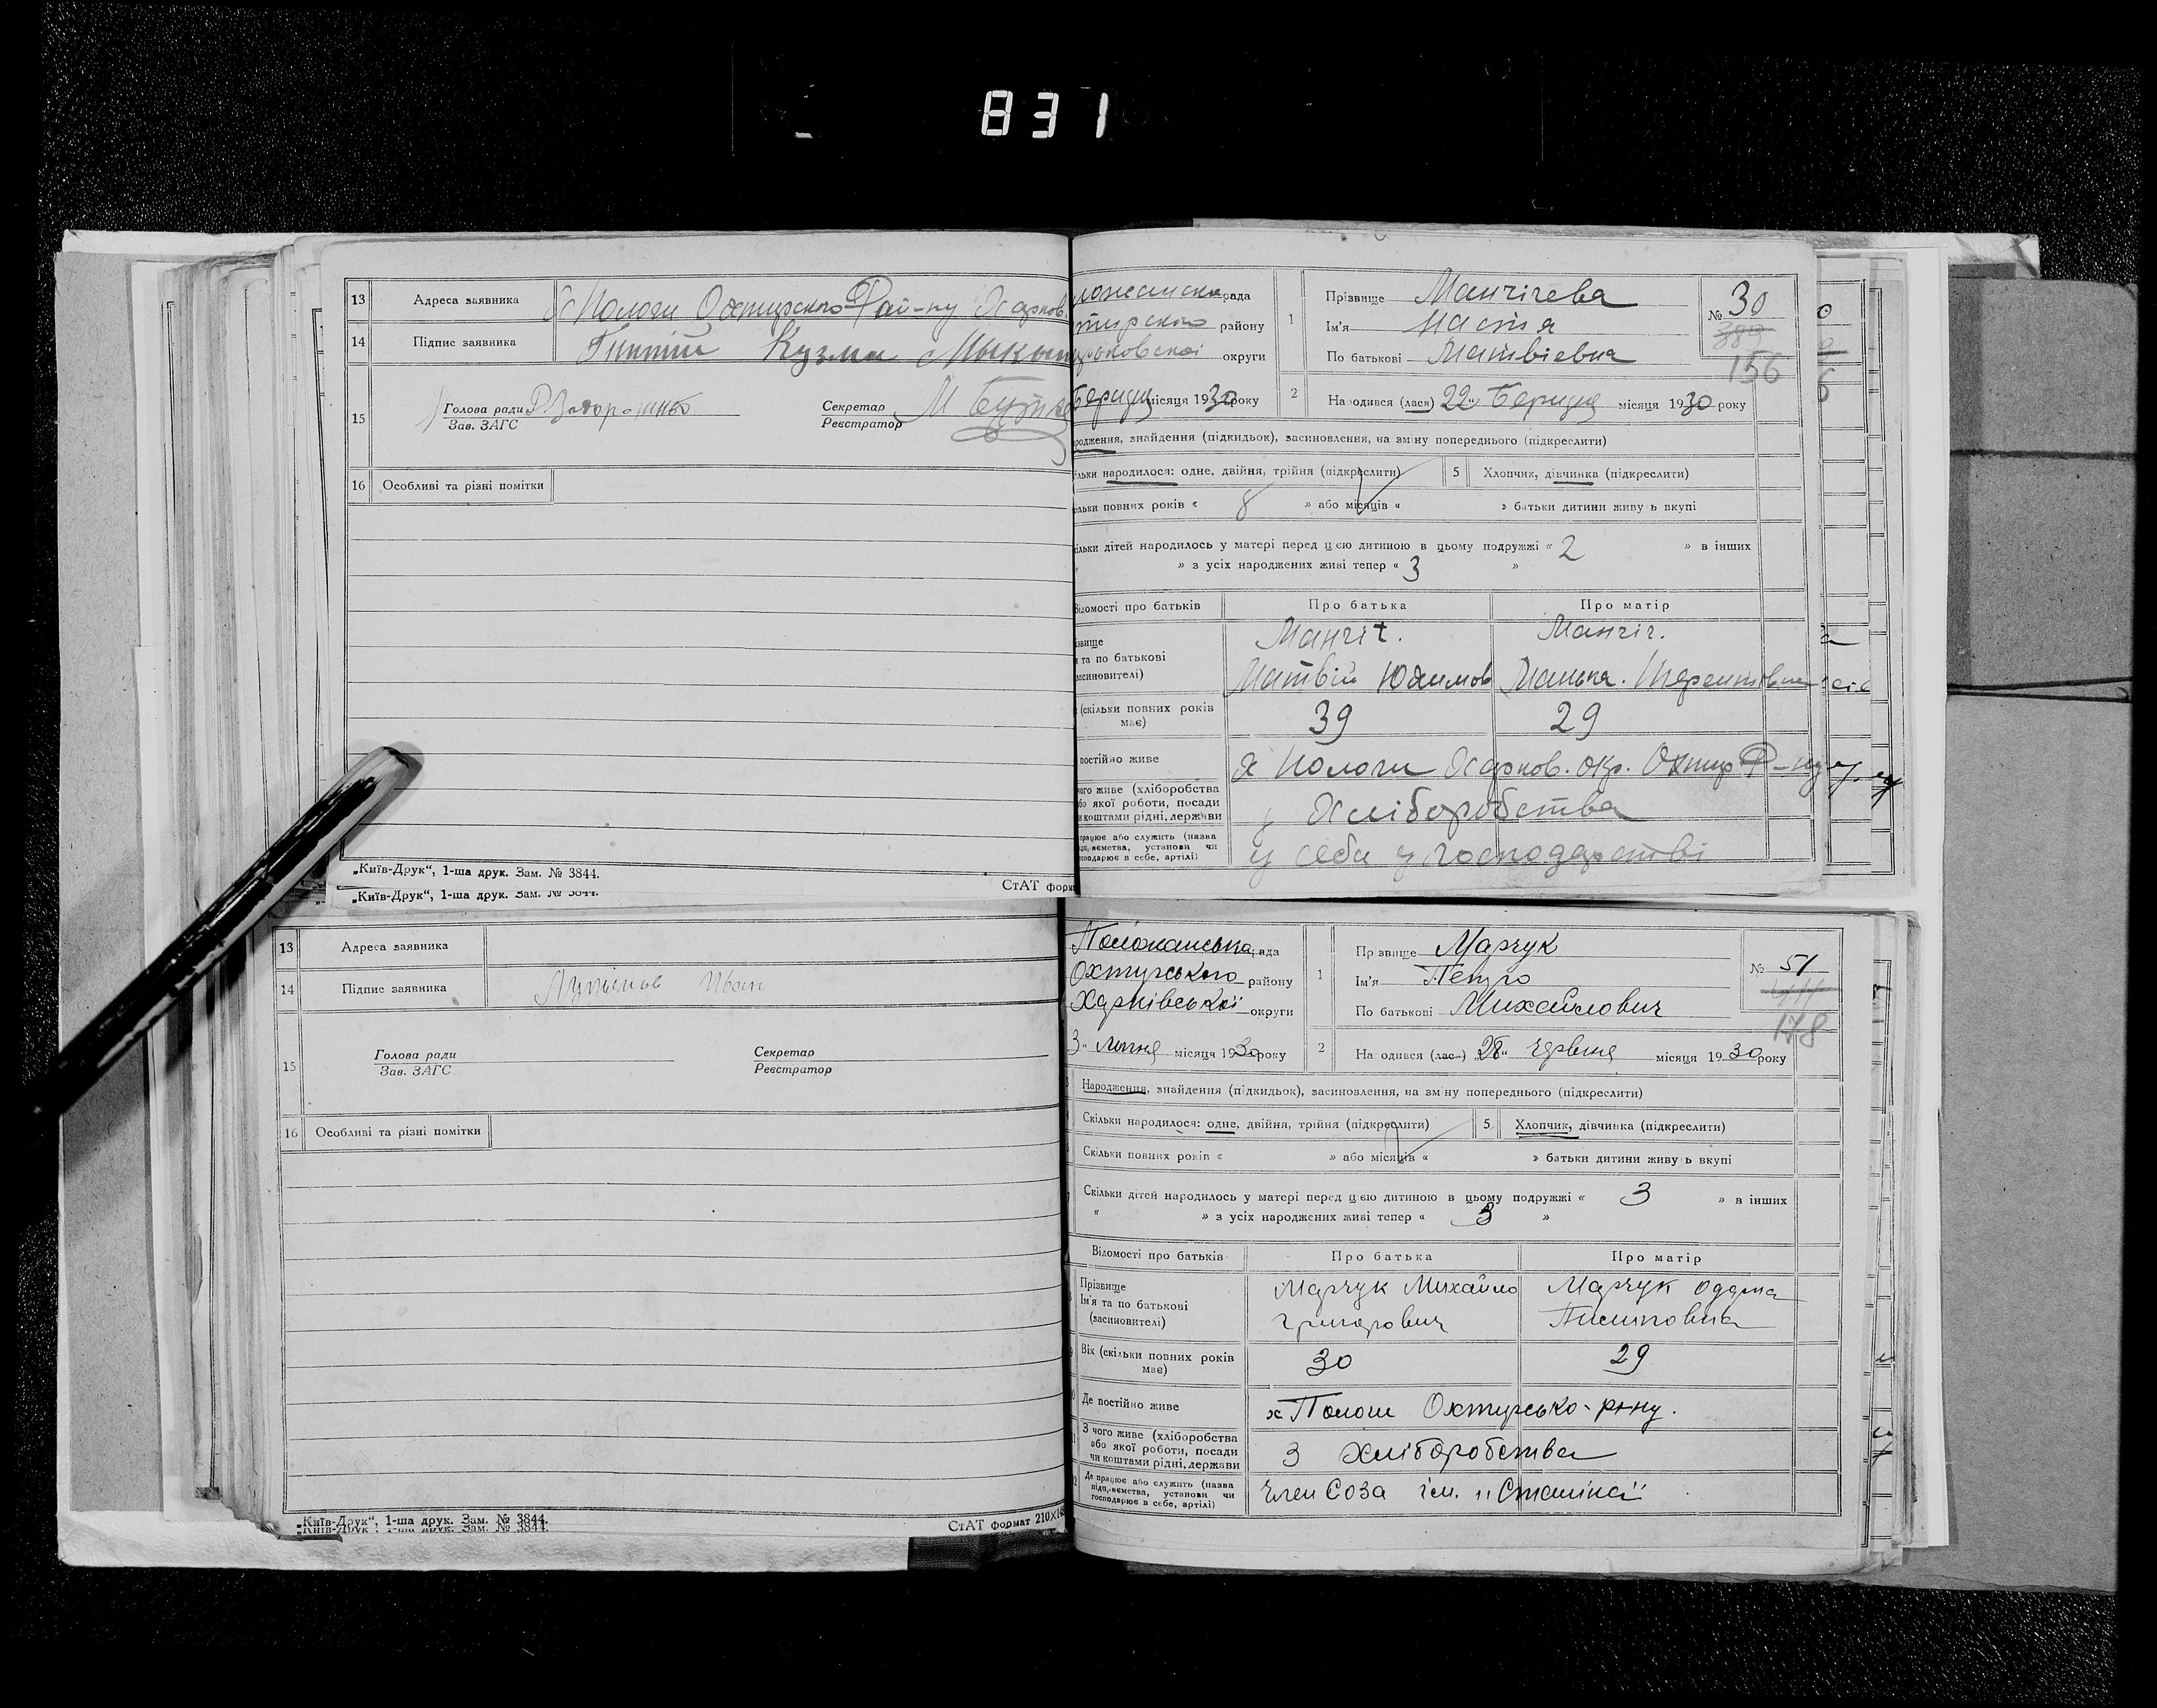 831
13 Адреса заявника х Пологи Охтирського Рай-ну Харков.
14 Підпис заявника Кузма
15 Голова ради Зав. ЗАГС Секретар Реєстратор М
16 Особливі та різні помітки
„Київ-Друк“, 1-ша друк. Зам. № 3844.
„Київ-Друк“, 1-ша друк. Зам. № 3844.
СтАТ форм
рада
району
округи
Березня місяця 1930 року
1 Прізвище Манчічева
Ім'я Настя
По батькові Матвіевна
№ 30
156
2 На одився (лася) „22“ Березня місяця 1930 року
родження, знайдення (підкидьок), засиновлення, на зміну попереднього (підкреслити)
ільки народилося: одне, двійня, трійня (підкреслити) 5 Хлопчик, дівчинка (підкреслити)
ільки повних років « 8 » або місяців « » батьки дитини живу ь вкупі
ільки дітей народилось у матері перед цією дитиною в цьому подружжі « 2 » в інших
» з усіх народжених живі тепер « 3 »
Відомості про батьків Про батька Про матір
ізвище Манчіч. Манчіч.
та по батькові
асиновителі) Матвій Юхимов
(скільки повних років має) 39 29
постійно живе х Пологи Харков. окр. Охтир Р-ну
чого живе (хліборобства
бо якої роботи, посади
и коштами рідні, держави у Хліборобства
працює або служить (назва
ідприємства, установи чи
осподарює в себе, артілі) у себе у господарстві
13 Адреса заявника
14 Підпис заявника Иван
15 Голова ради Зав. ЗАГС Секретар Реєстратор
16 Особливі та різні помітки
„Київ-Друк“, 1-ша друк. Зам. № 3844.
„Київ-Друк“, 1-ша друк. Зам. № 3844.
СтАТ формат 210×148
Положанська рада
Охтирського району
Харківської округи
3“ липня місяця 1930 року
1 Пр звище Марчук
Ім'я Петро
По батькові Михайлович
№ 51
178
2 На одився (лас-) „28“ Червня місяця 1930 року
Народження, знайдення (підкидьок), засиновлення, на зміну попереднього (підкреслити)
Скільки народилося: одне, двійня, трійня (підкреслити) 5 Хлопчик, дівчинка (підкреслити)
Скільки повних років « » або місяців « » батьки дитини живу ь вкупі
Скільки дітей народилось у матері перед цією дитиною в цьому подружжі « 3 » в інших
« » з усіх народжених живі тепер « 3 »
Відомості про батьків Про батька Про матір
Прізвище
Ім'я та по батькові
(засиновителі)
Марчук Михайло Григорович
Марчук
Вік (скільки повних років має) 30 29
Де постійно живе х Пологи Охтирсько-р-ну.
З чого живе (хліборобства
або якої роботи, посади
чи коштами рідні, держави З хліборобства
Де працює або служить (назва
підприємства, установи чи
господарює в себе, артілі) Член Соза ім. „Сталіна“